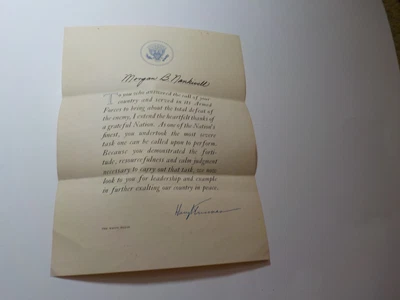 Morgan B.
To you who answered the call of your
country and served in its Armed
Forces to bring about the total defeat of
the enemy, I extend the heartfelt thanks of
a grateful Nation. As one of the Nation's
finest, you undertook the most severe
task one can be called upon to perform.
Because you demonstrated the forti-
tude, resourcefulness and calm judgment
necessary to carry out that task, we now
look to you for leadership and example
in further exalting our country in peace.
Harry Truman
THE WHITE HOUSE